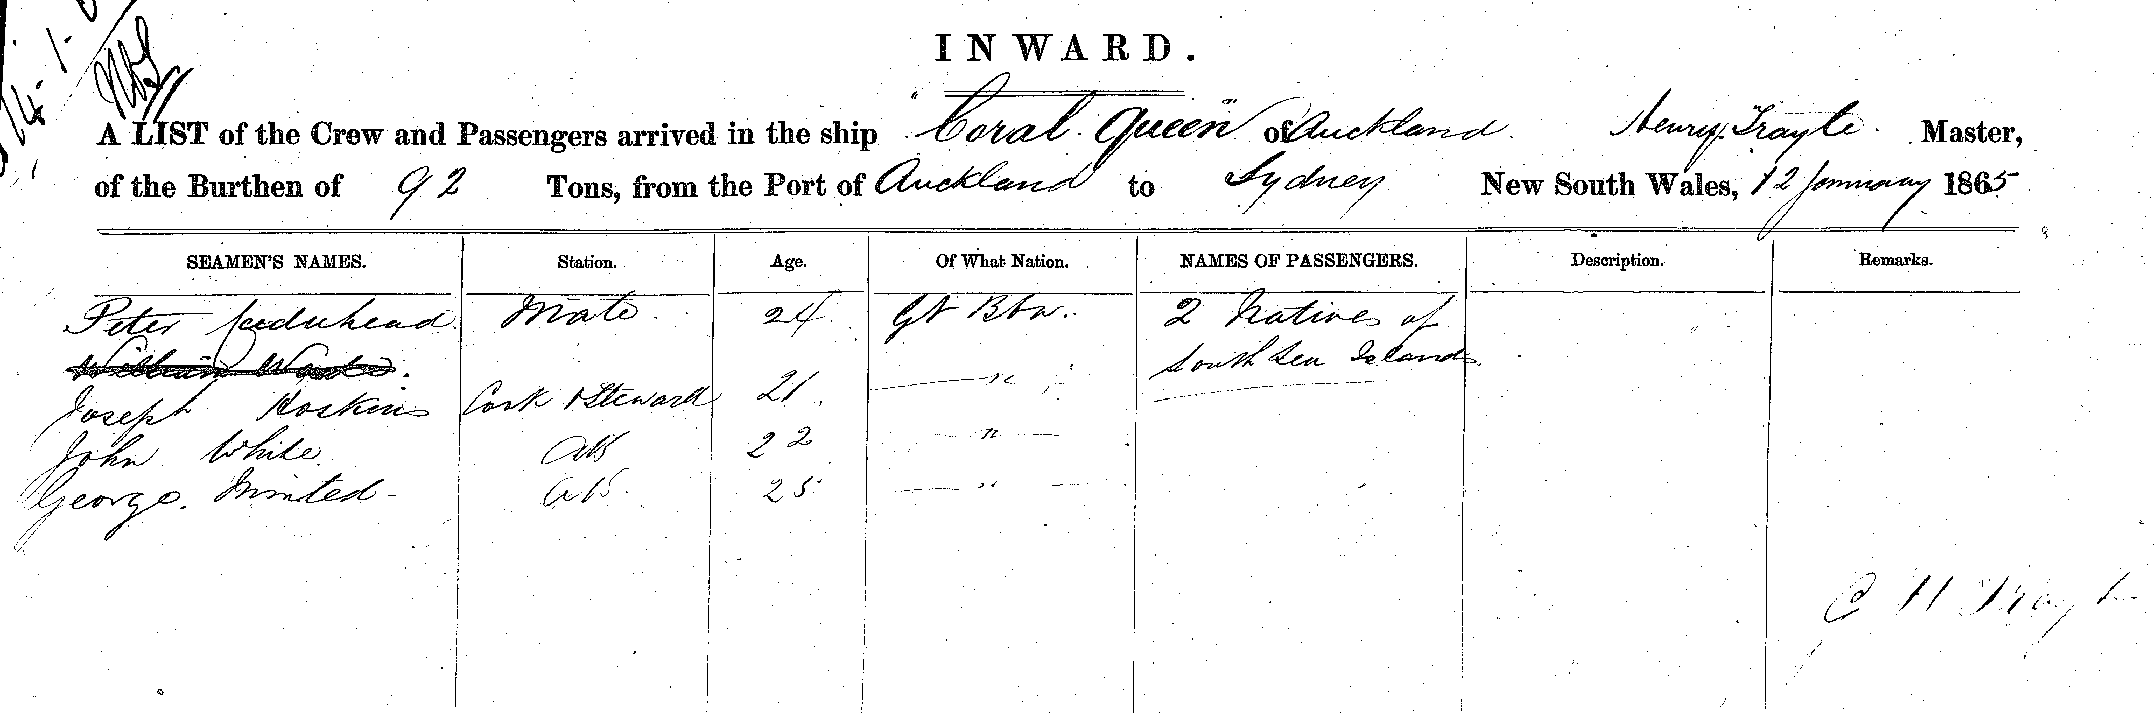 14-1-6
INWARD.
A LIST of the Crew and Passengers arrived in the ship "Coral Queen" of Auckland Henry Master,
of the Burthen of 92 Tons, from the Port of Auckland to Sydney New South Wales, 12 January 1865
SEAMEN'S NAMES. Station. Age. Of What Nation. NAMES OF PASSENGERS. Description. Remarks.
Peter Mate 24 Gt Btn. 2 Natives of
William South Sea Islands
Joseph Hoskins Cook & Steward 21 "
John White AB 22 "
George AB 25 "
C H